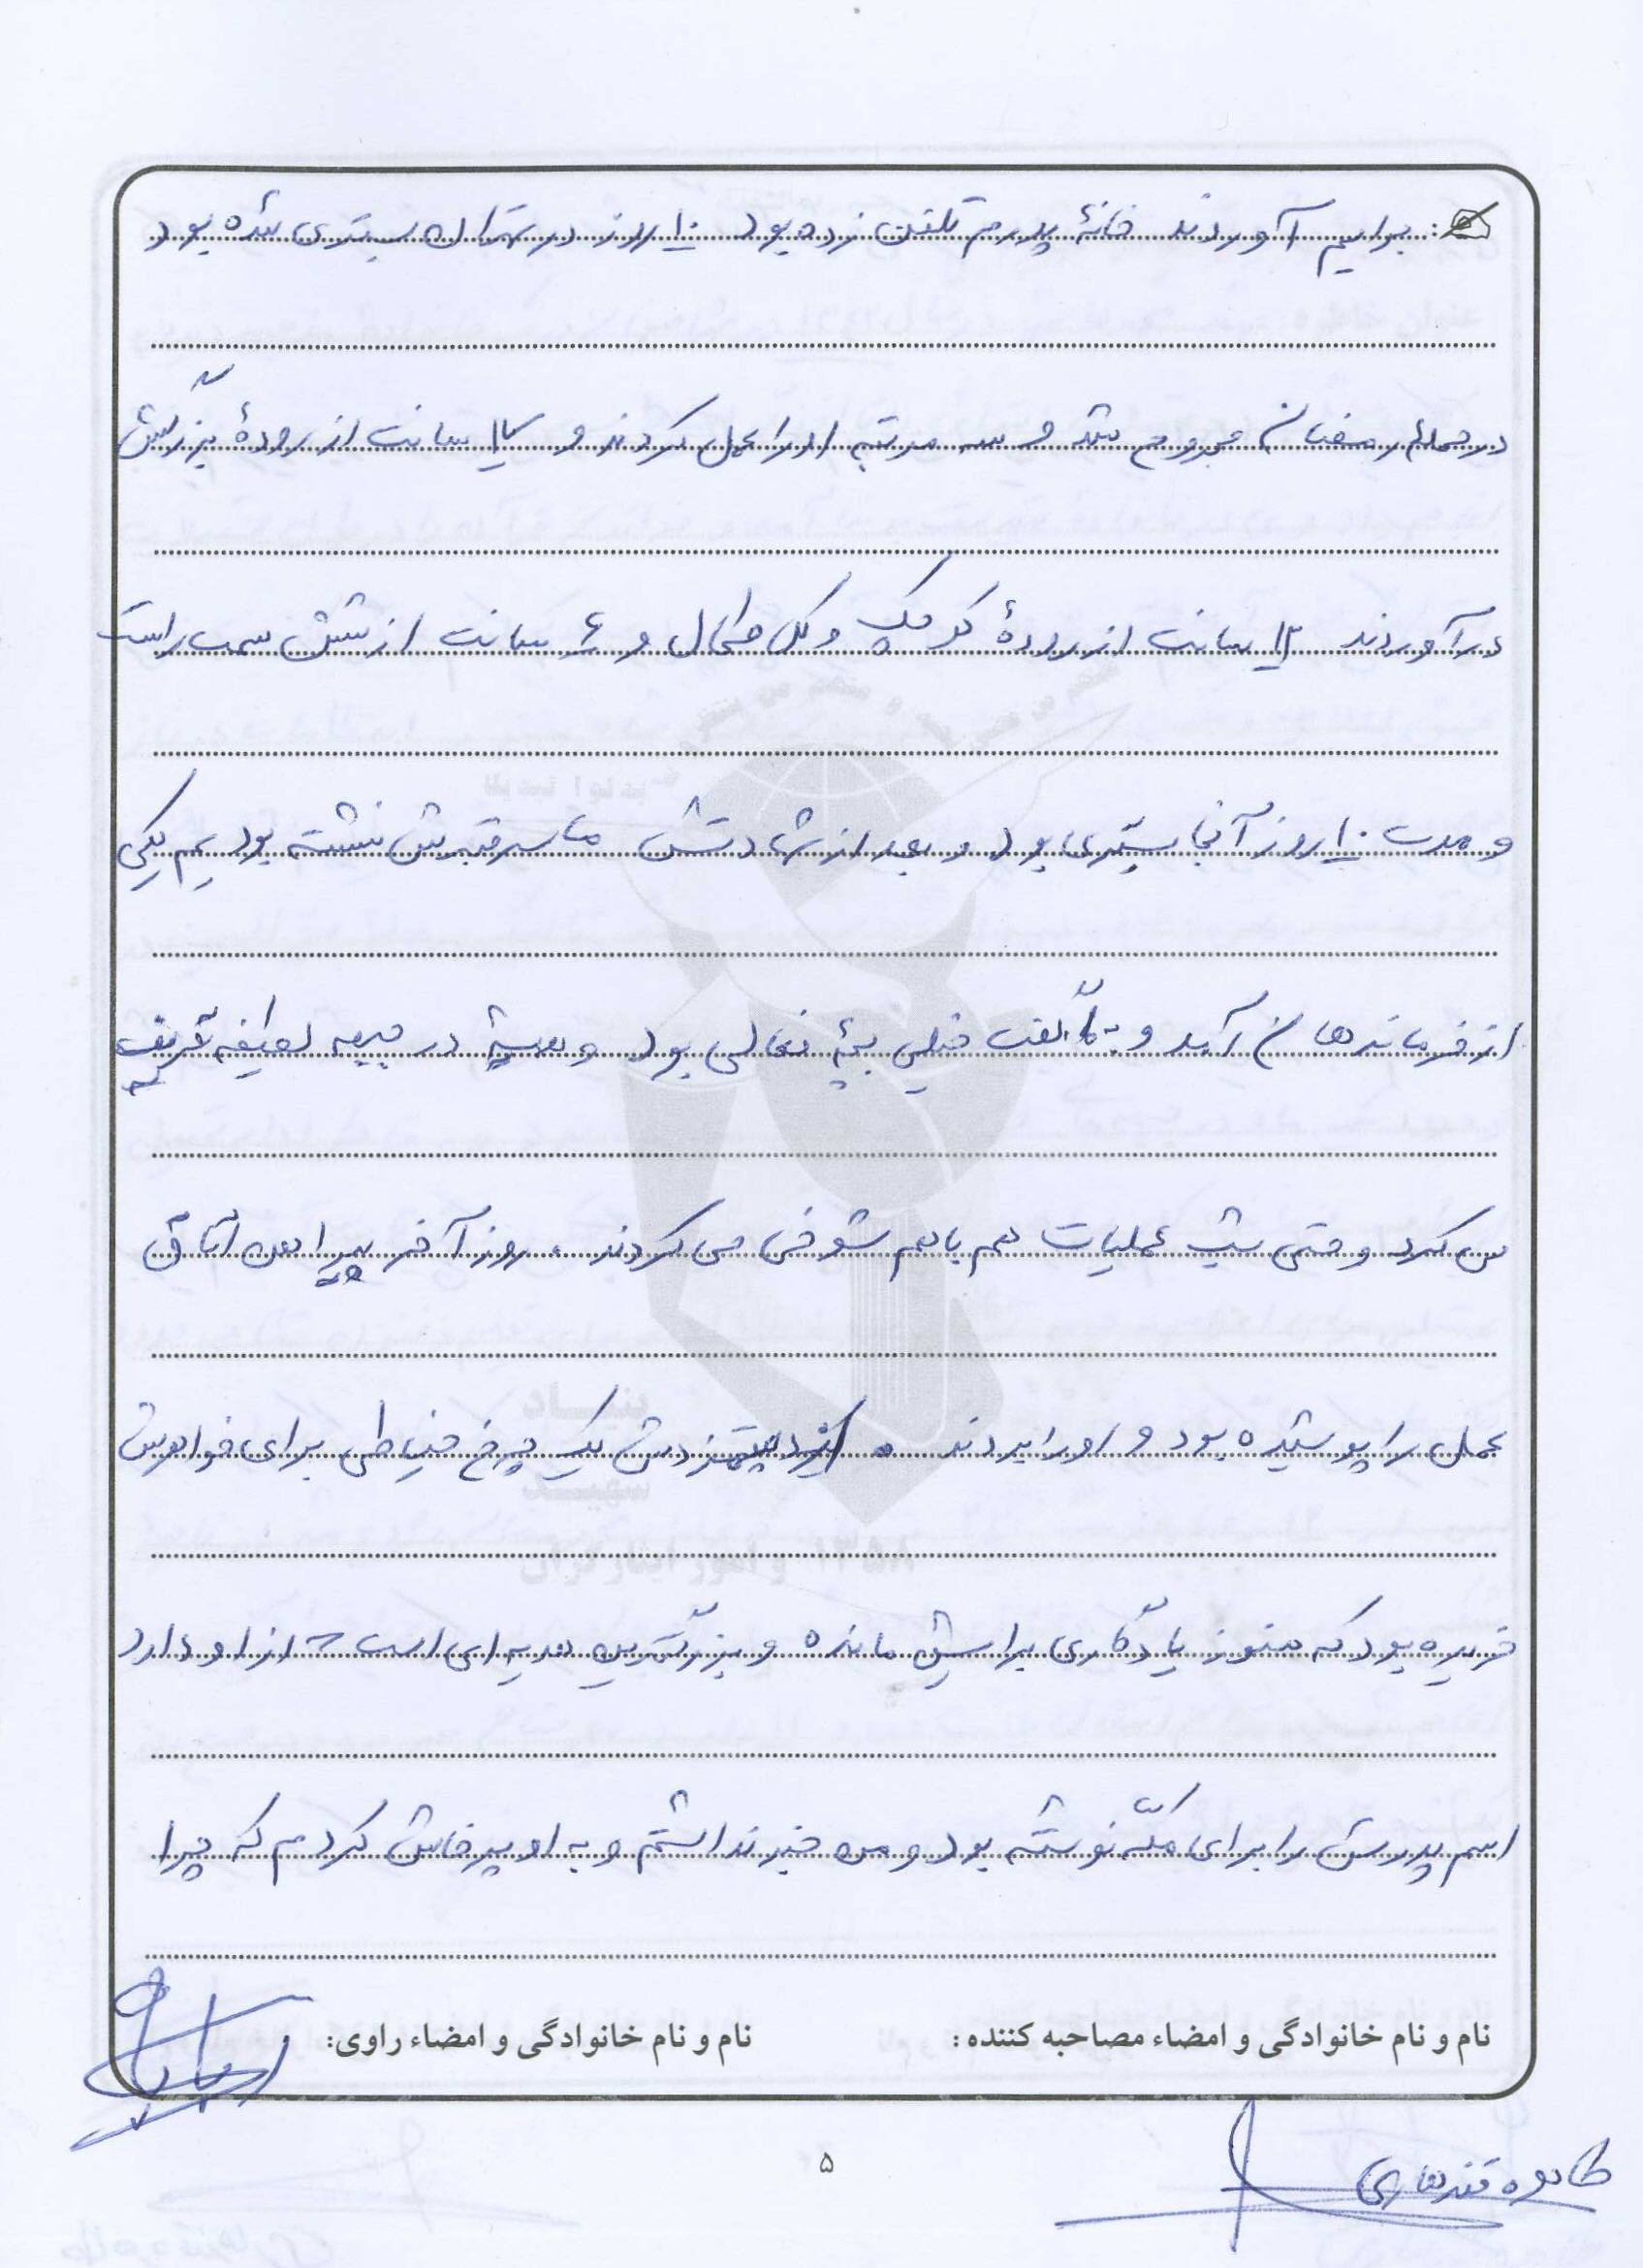 برایم آوردند خانۀ پدرم تلفن زده بود ۱۰ روز در تهران بستری شده بود
در حملۀ رمضان مجروح شد و سه مرتبه او را عمل کردند و ۱۷ سانت از رودۀ بزرگش
در آوردند ۱۳ سانت از رودۀ کوچک و کل طحال و ۶ سانت از شش سمت راست
و مدت ۱۰ روز آنجا بستری بود و بعد از شهادتش ما سر قبرش نشسته بودیم یکی
از فرماندهان آمد و گفت خیلی بچۀ فعالی بود و همیشه در جبهه لطیفه تعریف
می کرد و حتی شب عملیات هم با هم شوخی می کردند، روز آخر پیراهن اتاق
عمل را پوشیده بود و او را بردند یک چرخ خیاطی برای خواهرش
خریده بود که هنوز یادگاری برایش مانده و بزرگترین هدیه ای است که از او دارد
اسم پدرش را برای مکّه نوشته بود و من خبر نداشتم و به او پرخاش کردم که چرا
نام و نام خانوادگی و امضاء مصاحبه کننده: نام و نام خانوادگی و امضاء راوی:
طاهره قندهاری
۵